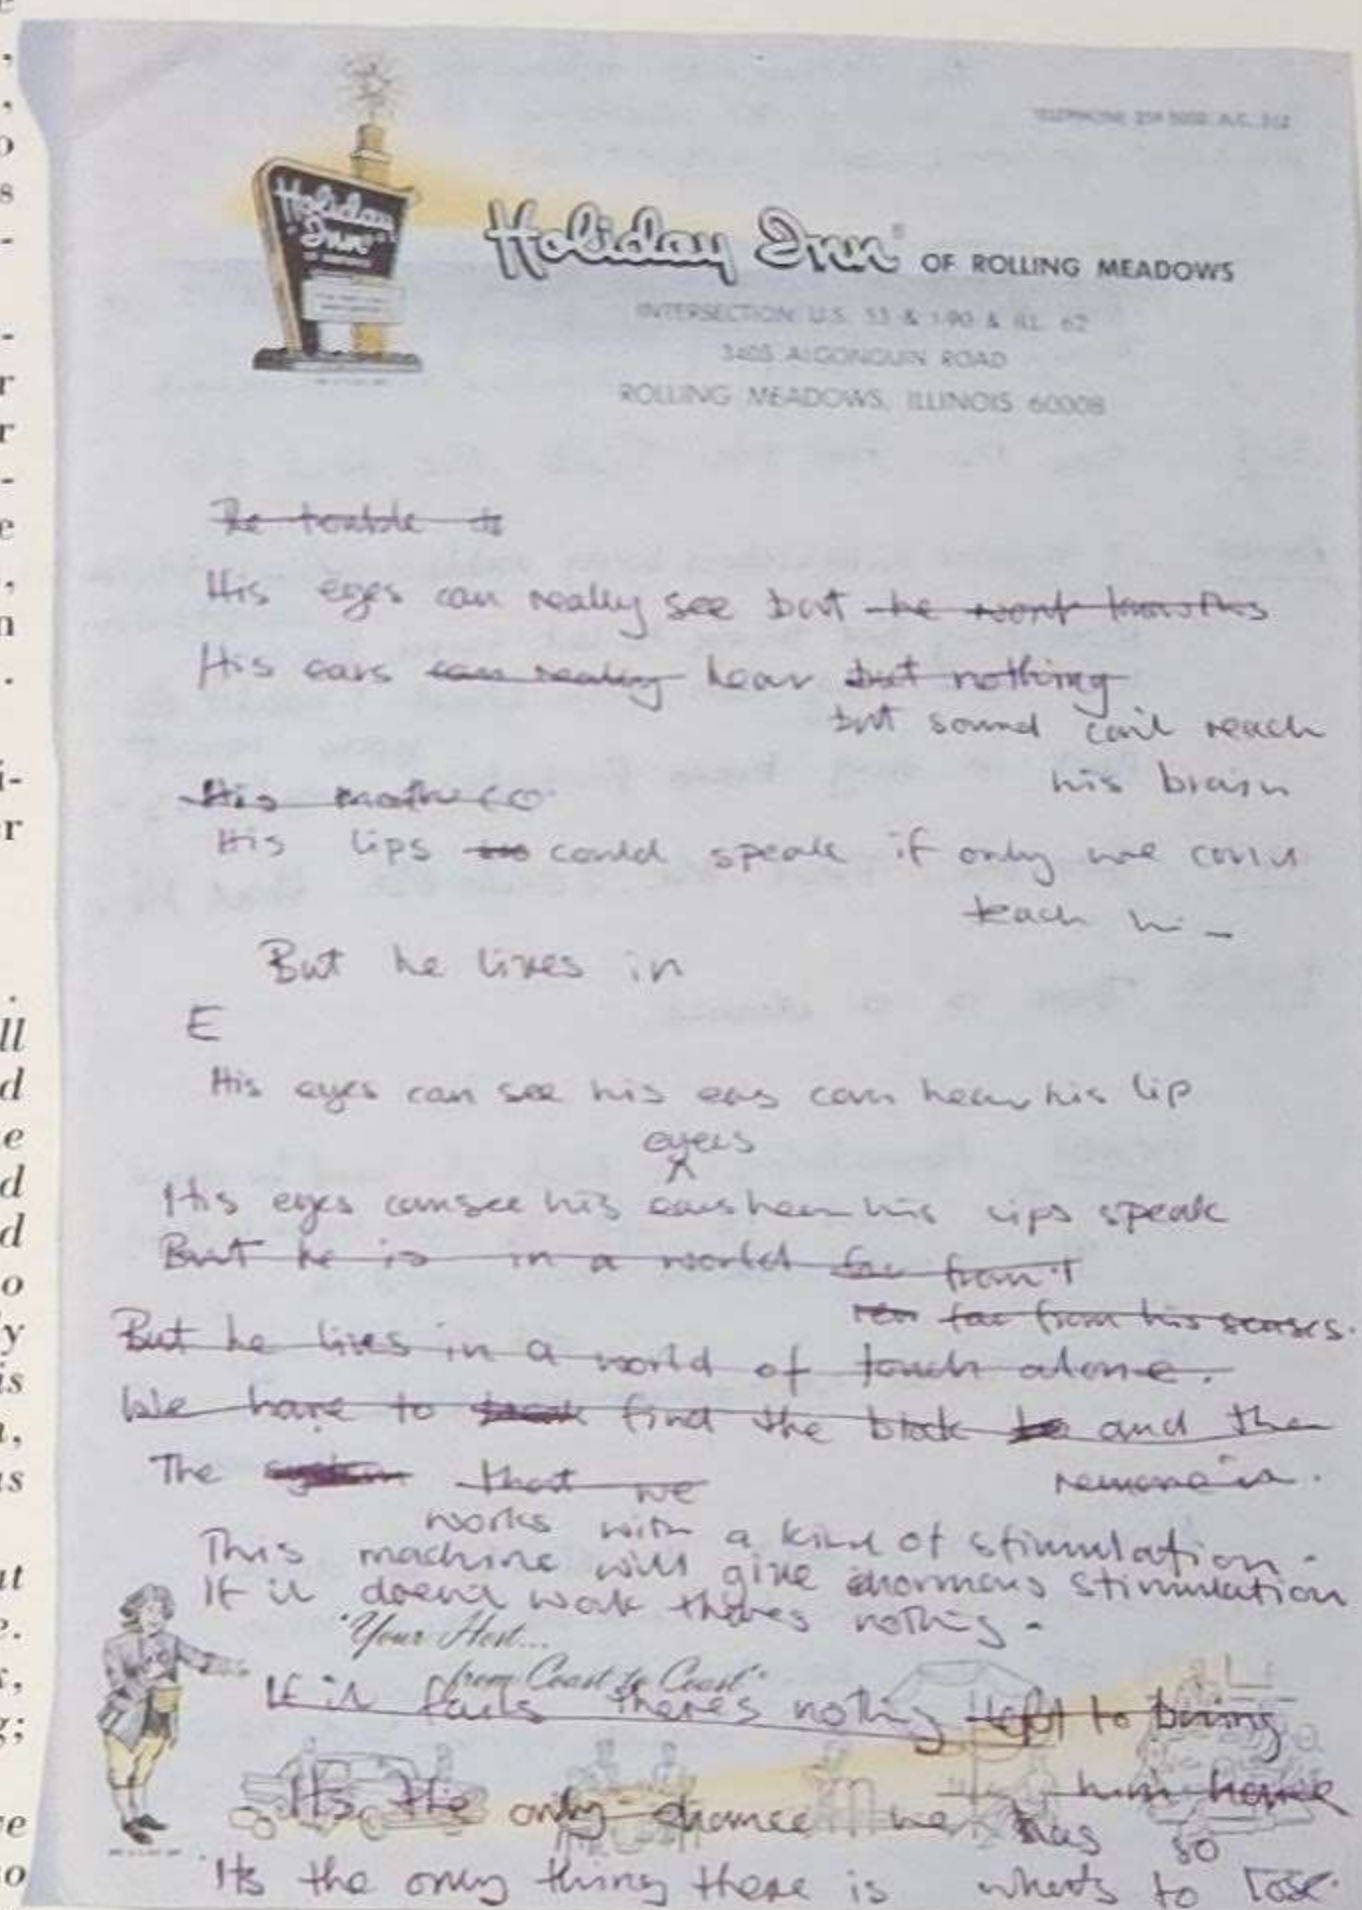 TELEPHONE 259 5000 A.C. 312
Holiday Inn
Holiday Inn® OF ROLLING MEADOWS
INTERSECTION U.S. 53 & I-90 & ILL. 62
3405 ALGONQUIN ROAD
ROLLING MEADOWS, ILLINOIS 60008
The trouble is
His eyes can really see but he wont know this
His ears can really hear but nothing
but sound can't reach
his brain
His
His lips could speak if only we could
teach hi
But he lives in
E
His eyes can see his ears can hear his lip
eyes
His eyes can see his ears hear his lips speak
But he is in a world far from
far from his senses.
But he lives in a world of touch alone.
We have to find the block and then
The that we remove it.
works with a kind of stimulation.
This machine will give enormous stimulation
If it doesnt work theres nothing.
"Your Host...
from Coast to Coast"
If it fails theres nothing left to bring
him home
Its the only chance he has so
Its the only thing there is whats to lose.